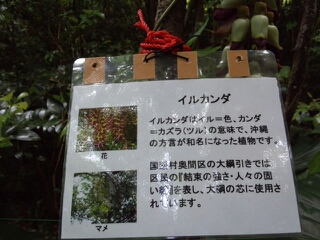 イルカンダ
イルカンダはイル＝色、カンダ
＝カズラ(ツル)の意味で、沖縄
の方言が和名になった植物です。
花
国頭村奥間区の大綱引きでは
区民の『結束の強さ・人々の固
い絆』を表し、大綱の芯に使用さ
れています。
マメ